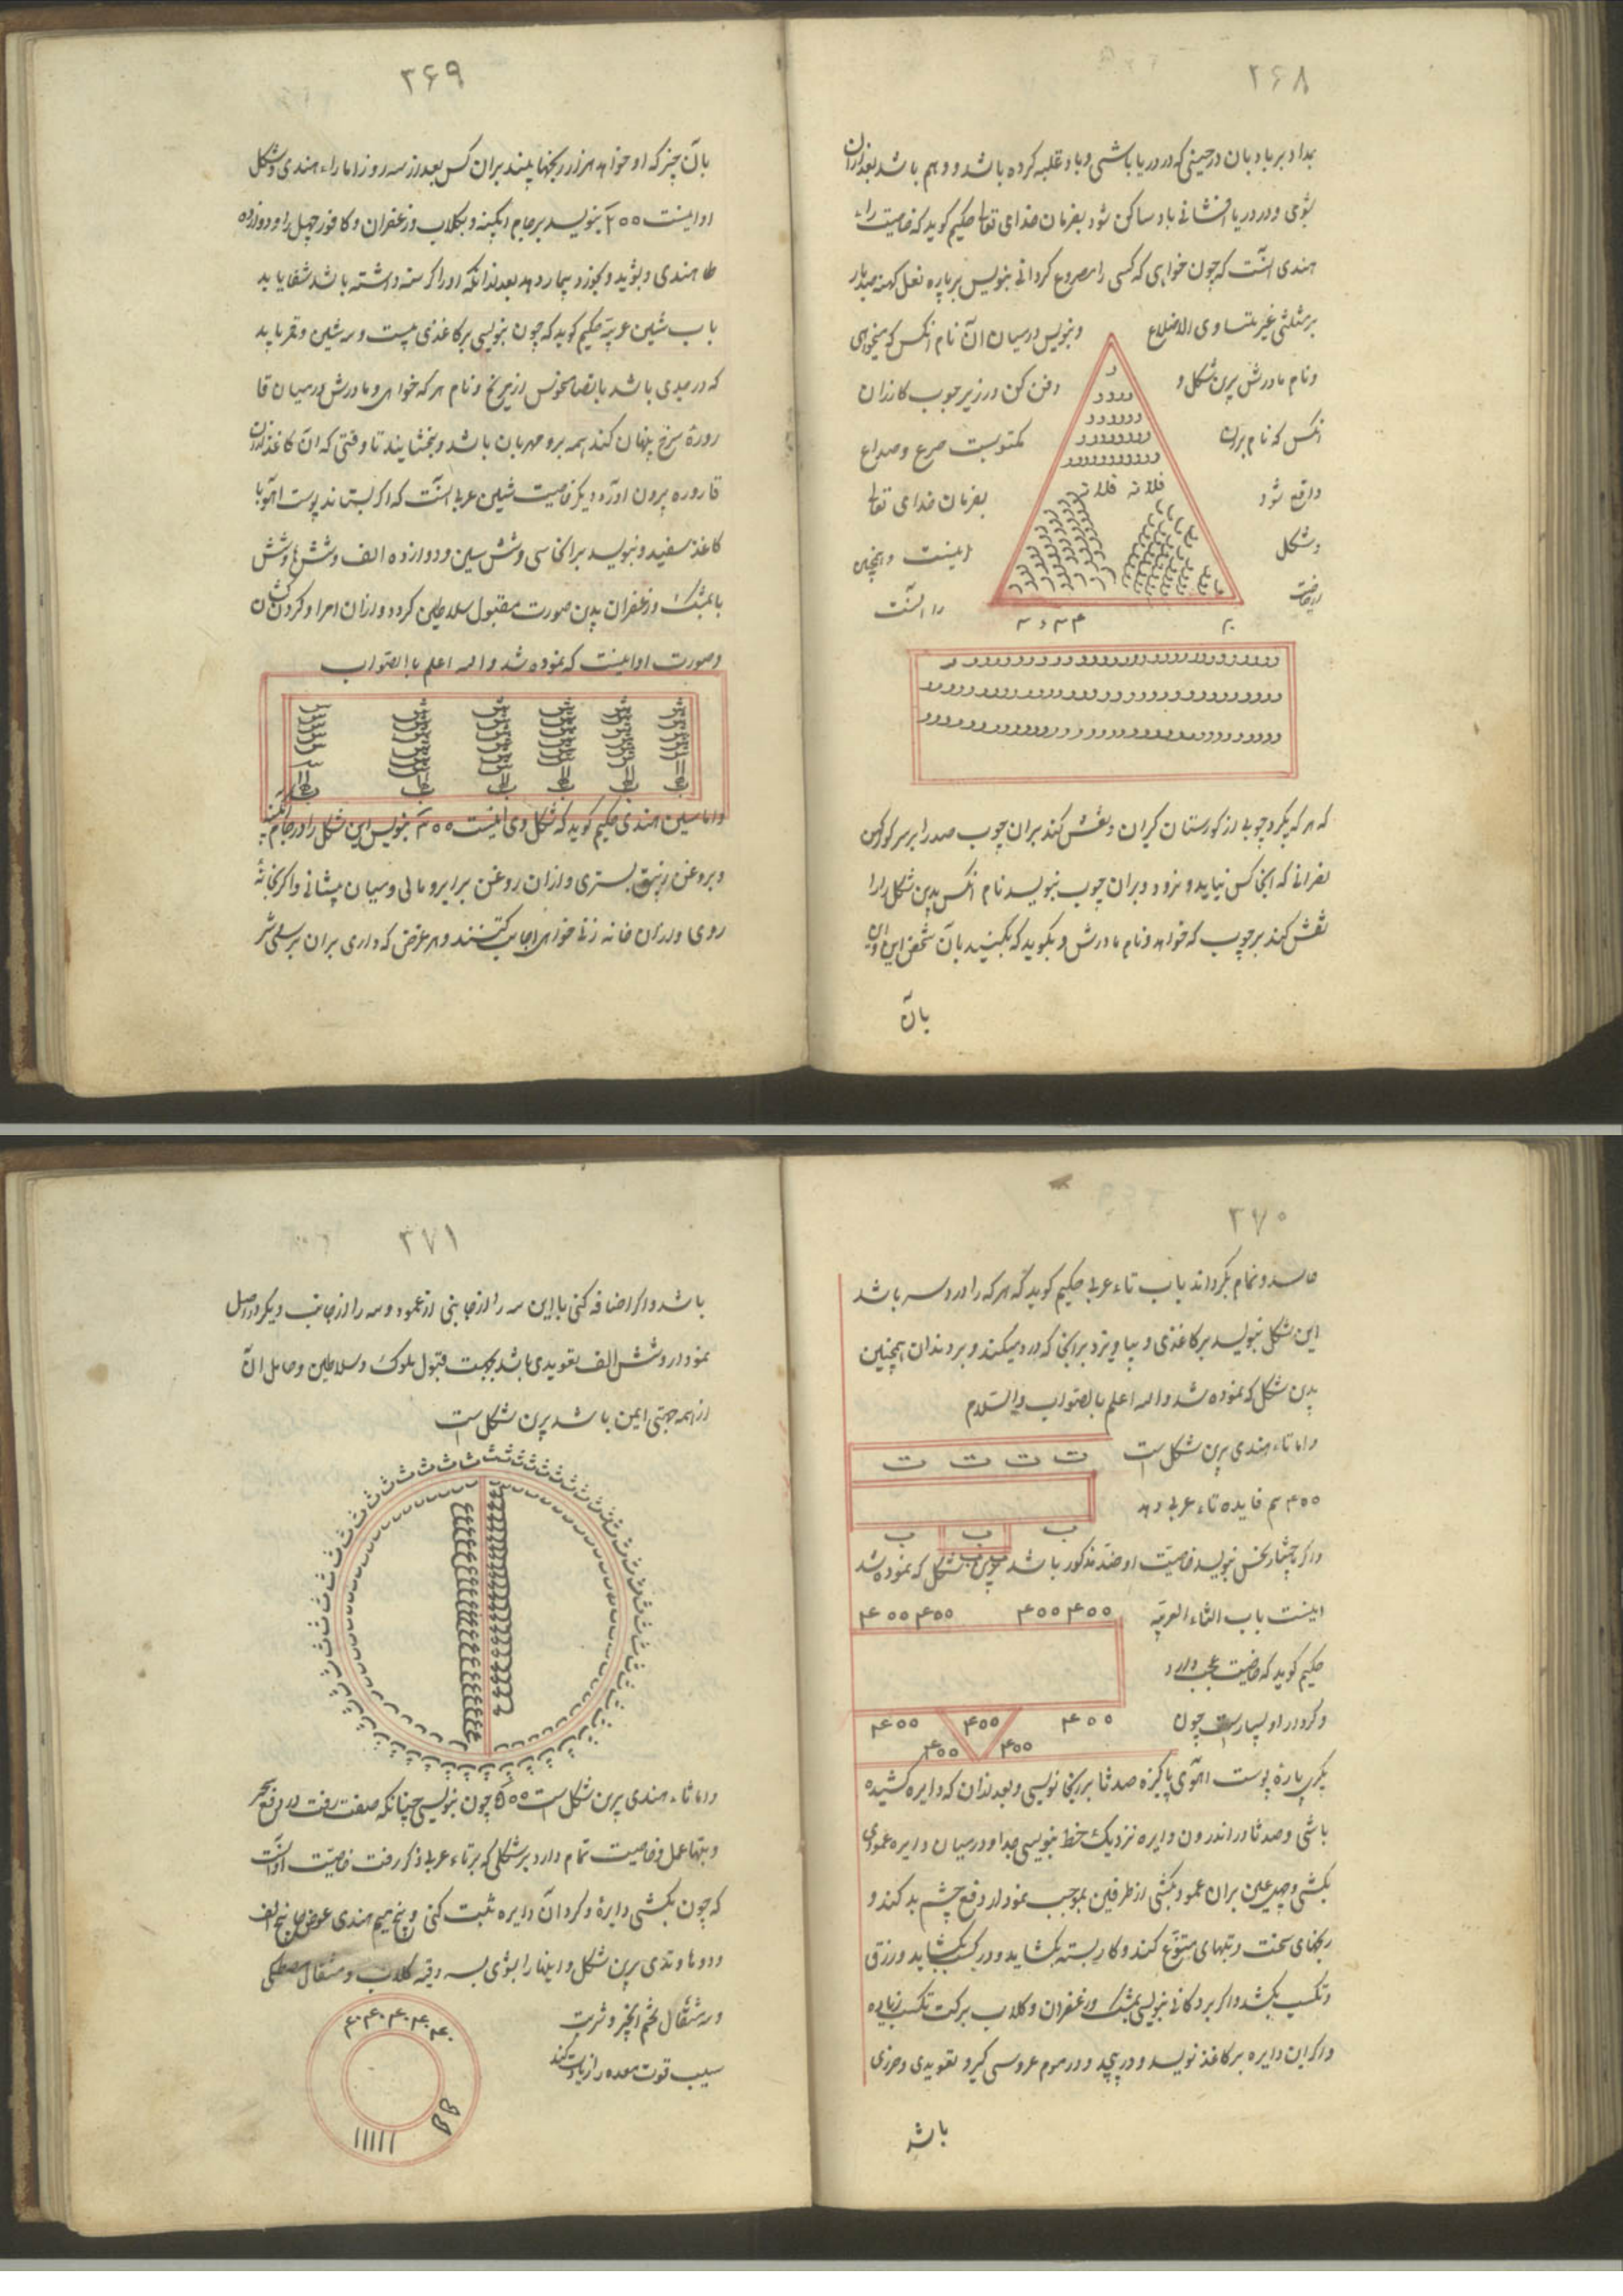 ۲۶۸
بمداد بر بادبان در حینی که در دریا باشی و باد غلبه کرده باشد و وهم باشد بعد ازان
بشوی و در دریا افشانی باد ساکن شود بفرمان خدای تعالی حکیم کوید که خاصیت راء
هندی آنست که چون خواهی که کسی را مصروع کردانی بنویس بر پاره نعل کهنه صد بار
بر مثلثی غیر متساوی الاضلاع
و بنویس در میان آن نام انکس که میخواهی
و نام مادرش برین شکل و
دفن کن در زیر چوب کازران
انکس که نام بران
مکتوبست صرع و صداع
واقع شود
بفرمان خدای تعالی
و شکل
اینست و همچنین
را آنست
ر
رررر
فلانه فلانه
که هر که بگیرد چوبی از کورستان کبران و نقش کند بران چوب صد را بر سر کور
نصرانی که انجا کس نیاید و نرود و بران چوب بنویسد نام انکس بدین شکل را
نقش کند بر چوب که خواهد و نام مادرش و بگوید که بکنید بآن شخص این و این
بآن
۲۶۹
بآن چیز که او خواهد از رنجها بپیند بران کس بعد از سه روز اما راء هندی و شکل
او اینست ۲۰۰ بنویسد بر جام ابکینه و بکلاب و زعفران و کافور چهل را و دوازده
طا هندی و بشوید و بخورد بیمار دهد بعد از آنکه او را کرسنه داشته باشد شفا یابد
باب شین عربیه حکیم کوید که چون بنویسی بر کاغذی بیست و سه شین و قمر باید
که در جدی باشد با اتصال نحوس از زیرنخ و نام هر که خواهی و مادرش در میان قا
رورهٔ سرخ پنهان کند همه برو مهربان باشد و بخشایند تا وقتی که آن کاغذ ازان
قاروره بیرون آورد دیگر خاصیت شین عربی آنست که اکر بستاند پوست اهو یا
کاغذ سفید و بنویسد بر انجا سی و شش سین و دوازده الف و شش ها و شش
با بمشک و زعفران بدین صورت مقبول سلاطین کردد و ازان امرا و کردن کشان
و صورت او اینست که نموده شد والله اعلم باالصواب
و اما سین هندی حکیم کوید که شکل وی اینست ۳۰۰ بنویس این شکل را در جام ابکینه
و بروغن زنبق بستری و ازان روغن بر ابرو مالی و میان پیشانی و اکر بخانهٔ
روی و دران خانه زنی خواهی اجابت کنند و هر غرض که داری بران
۲۷۰
حاسد و نمام بکرداند باب تاء عربی حکیم کوید که هر که را درد سر باشد
این شکل بنویسد بر کاغذی و بیاویزد بر انجا که درد میکند و بر دندان همچنین
بدین شکل که نموده شد والله اعلم بالصواب والسلام
و اما تاء هندی برین شکل است
ت ت ت ت
۴۰۰ هم فایده تاء عربی دهد
ب ب ب
و اکر بچهار نحس بنویسد خاصیت او ضد مذکور باشد برین شکل که نموده شد
اینست باب الثاء العربیه
۴۰۰ ۴۰۰ ۴۰۰ ۴۰۰
حکیم کوید که خاصیت عجب دارد
و کرد در او بسیارست چون
۴۰۰ ۴۰۰ ۴۰۰
۴۰۰ ۴۰۰
بکیری پارهٔ پوست اهوی پاکیزه صد ثا بر انجا نویسی و بعد از ان که دایره کشیده
باشی و صد ثا در اندرون دایره نزدیک خط بنویسی جدا و در میان دایره عمودی
بکشی و چهل عین بران عمود بکشی از طرفین بموجب نمودار دفع چشم بد کند و
رنجهای سخت و تبهای متنوع کند و کار بسته بکشاید و در کسب بکشاید و رزق
و تکسب بکشد و اکر بر دکانی بنویسی بمشک و زعفران و کلاب برکت تکسب زیاده
و اکر این دایره بر کاغذ نویسد و در پیچد و در موم عروسی کیرد تعویذی و حرزی
باشد
۲۷۱
باشد و اکر اضافه کنی با این سه را از جانبی از عمود و سه را از جانب دیکر در اصل
نمودار و شش الف تعویذی باشد بجهت قبول ملوک و سلاطین و حامل آن
از همه جهتی ایمن باشد برین شکل است
و اما ثاء هندی برین شکل است ۵۰۰ چون بنویسی چنانکه صفت رفت در دفع سحر
و تبها عمل و خاصیت تمام دارد بر شکلی که بر تاء عربی ذکر رفت خاصیت او آنست
که چون بکشی دایرهٔ و کرد آن دایره ثبت کنی و پنج میم هندی عوض جا پنج الف
و دو ها و تدی برین شکل و اینها را بشوی بسه وقیه کلاب و مثقال مصطکی
و سه مثقال تخم انجیر و شربت
سیب قوت معده را زیادت کند
۴۰ ۴۰ ۴۰ ۴۰ ۴۰
ااااا